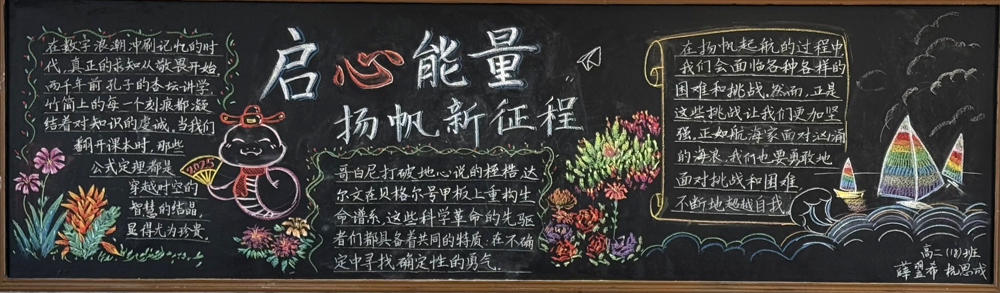 启心能量
扬帆新征程
在数字浪潮冲刷记忆的时
代,真正的求知从敬畏开始.
两千年前孔子的杏坛讲学,
竹简上的每一个刻痕都凝
结着对知识的虔诚.当我们
翻开课本时,那些
公式定理都是
穿越时空的
智慧的结晶,
显得尤为珍贵.
2025
哥白尼打破地心说的桎梏,达
尔文在贝格尔号甲板上重构生
命谱系.这些科学革命的先驱
者们都具备着共同的特质:在不确
定中寻找确定性的勇气.
在扬帆起航的过程中
我们会面临各种各样的
困难和挑战.然而,正是
这些挑战让我们更加坚
强.正如航海家面对汹涌
的海浪,我们也要勇敢地
面对挑战和困难,
不断地超越自我.
高二(18)班
薛翌希 杭思成